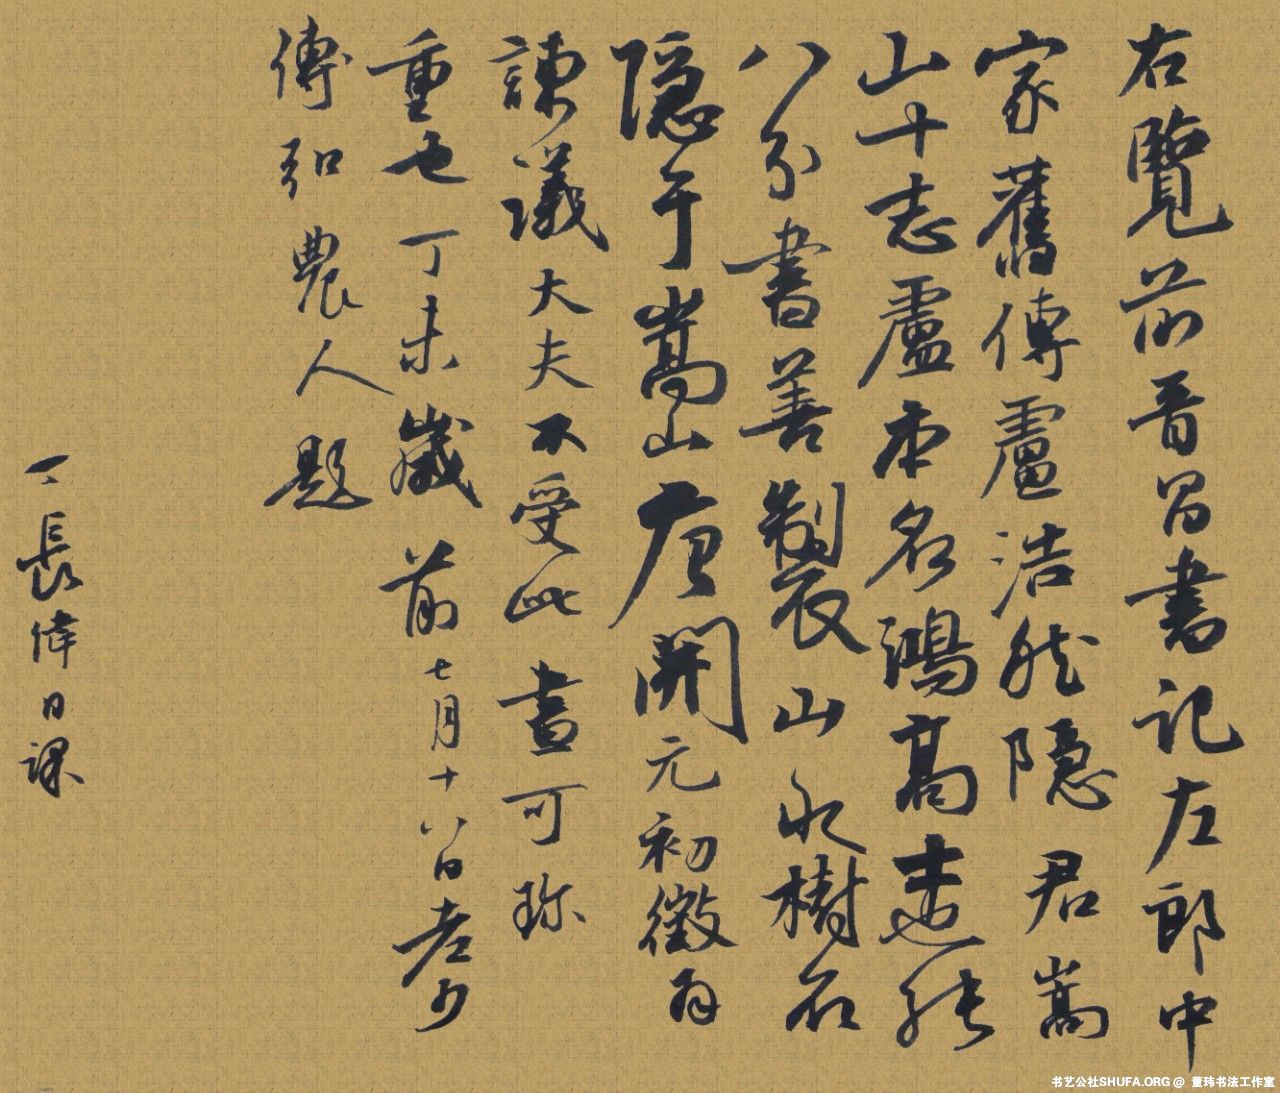 右覽前晉昌書記左郎中
家舊傳盧浩然隱君嵩
山十志盧本名鴻高士也能
八分書善製山水樹石
隱于嵩山唐開元初徵拜
諫議大夫不受此畫可珍
重也丁未歲前七月十八日老少
傅弘農人題
長偉日課
书艺公社SHUFA.ORG @ 董玮书法工作室